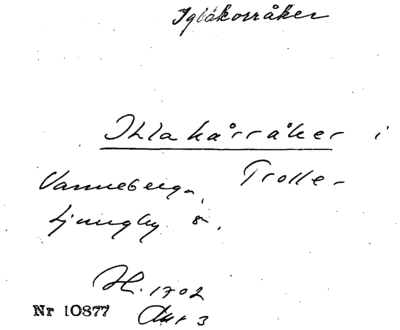 Iglakorråker
Ihlakårråker i
Vanneberga, Trolle-
Ljungby s.
H. 1702
Akt 3
Nr 10877